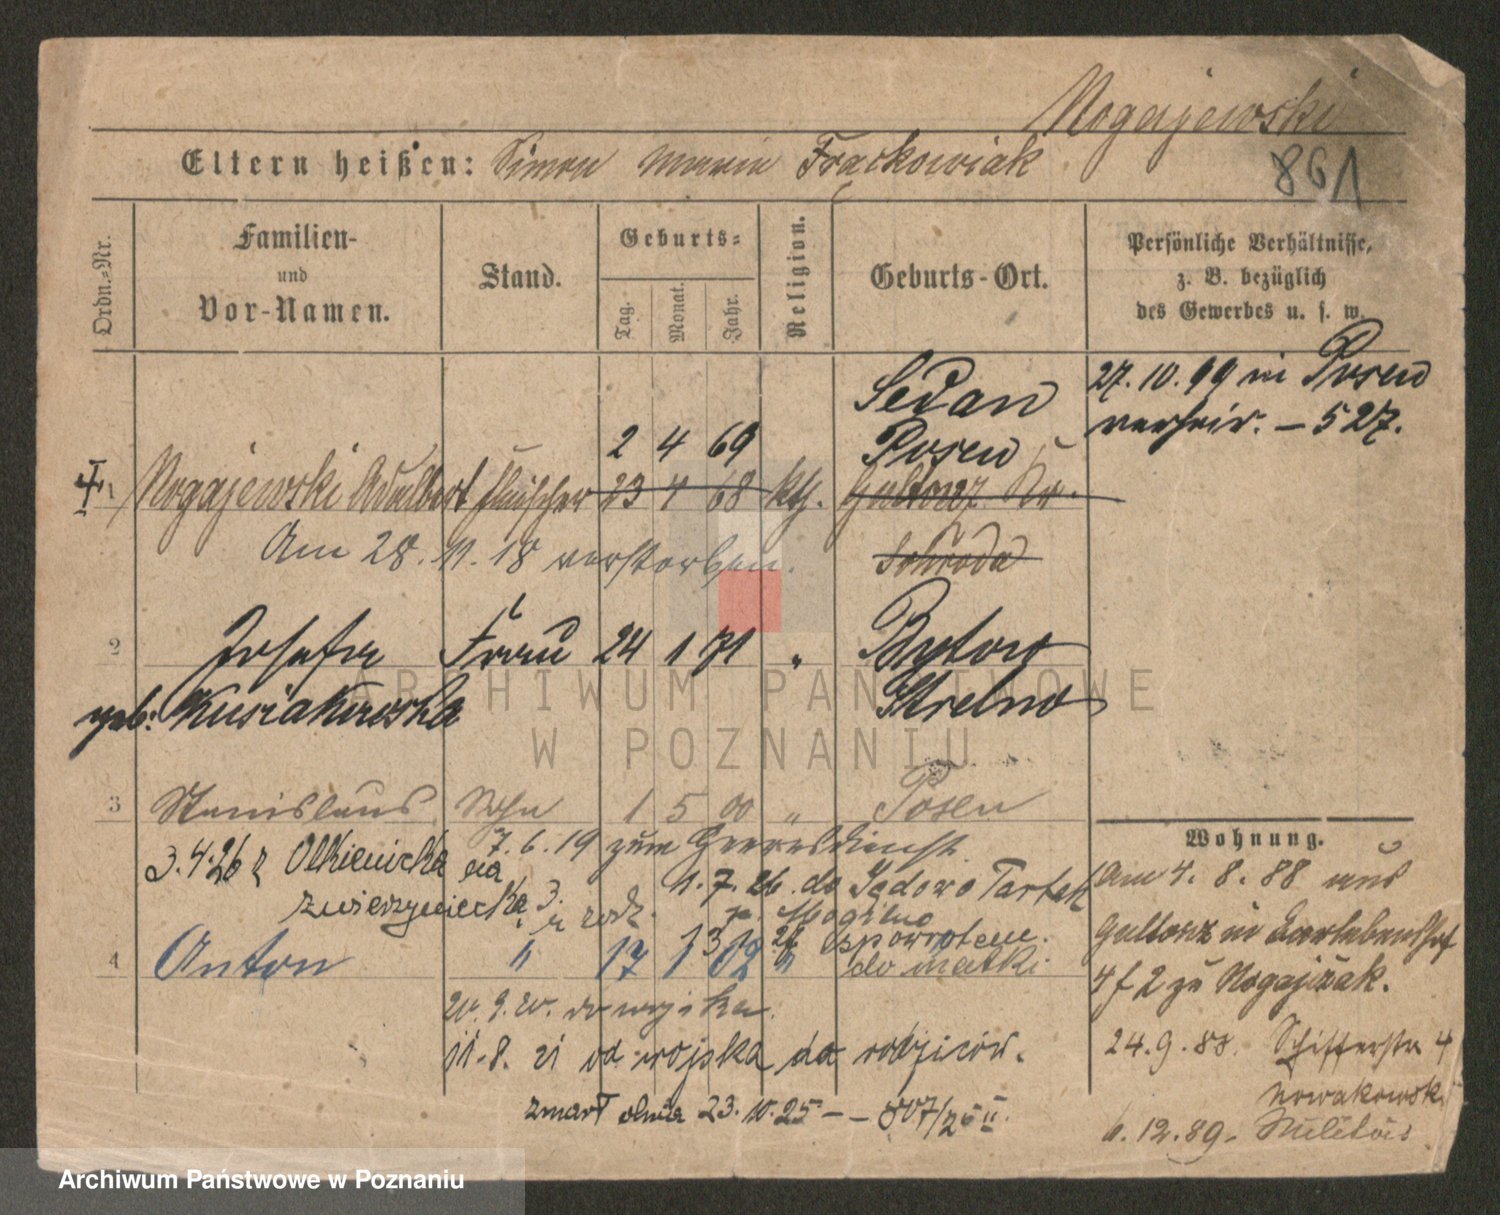 Nogajewski
Eltern heißen: Simon Maria Frąckowiak
861
Ordn.-Nr.
Familien-
und
Vor-Namen.
Stand.
Geburts-
Tag.
Monat.
Jahr.
Religion.
Geburts-Ort.
Persönliche Verhältnisse,
z. B. bezüglich
des Gewerbes u. s. w.
Sedan
27. 10. 99 in Posen
2 4 69 Posen
verheir. – 527.
1 Nogajewski Adalbert Fleischer 23 4 68 kth. Gultowy Kr.
Am 28. 11. 18 verstorben. Schroda
2 Josefa Frau 24 1 71 " Byton
geb: Kusiakowska Strelno
ARCHIWUM PAŃSTWOWE
W POZNANIU
3 Stanislaus Sohn 1 5 00 " Posen
7. 6. 19 zum Heeresdienst.
3. 4. 26 z na
1. 7. 26. do
z rodz. p. Mogilno
spowrotem
4 Anton " 17 1 02 " do matki
20. 9. 20. do wojska.
11. 8. 21 od wojska do rodziców.
zmarł dnia 23. 10. 25 – – 807/25 II.
Wohnung.
Am 4. 8. 88 aus
Gultowy in
4 f 2 zu Nogajczak.
24. 9. 88. Schifferstr 4
Nowakowski
6. 12. 89. Militär
Archiwum Państwowe w Poznaniu